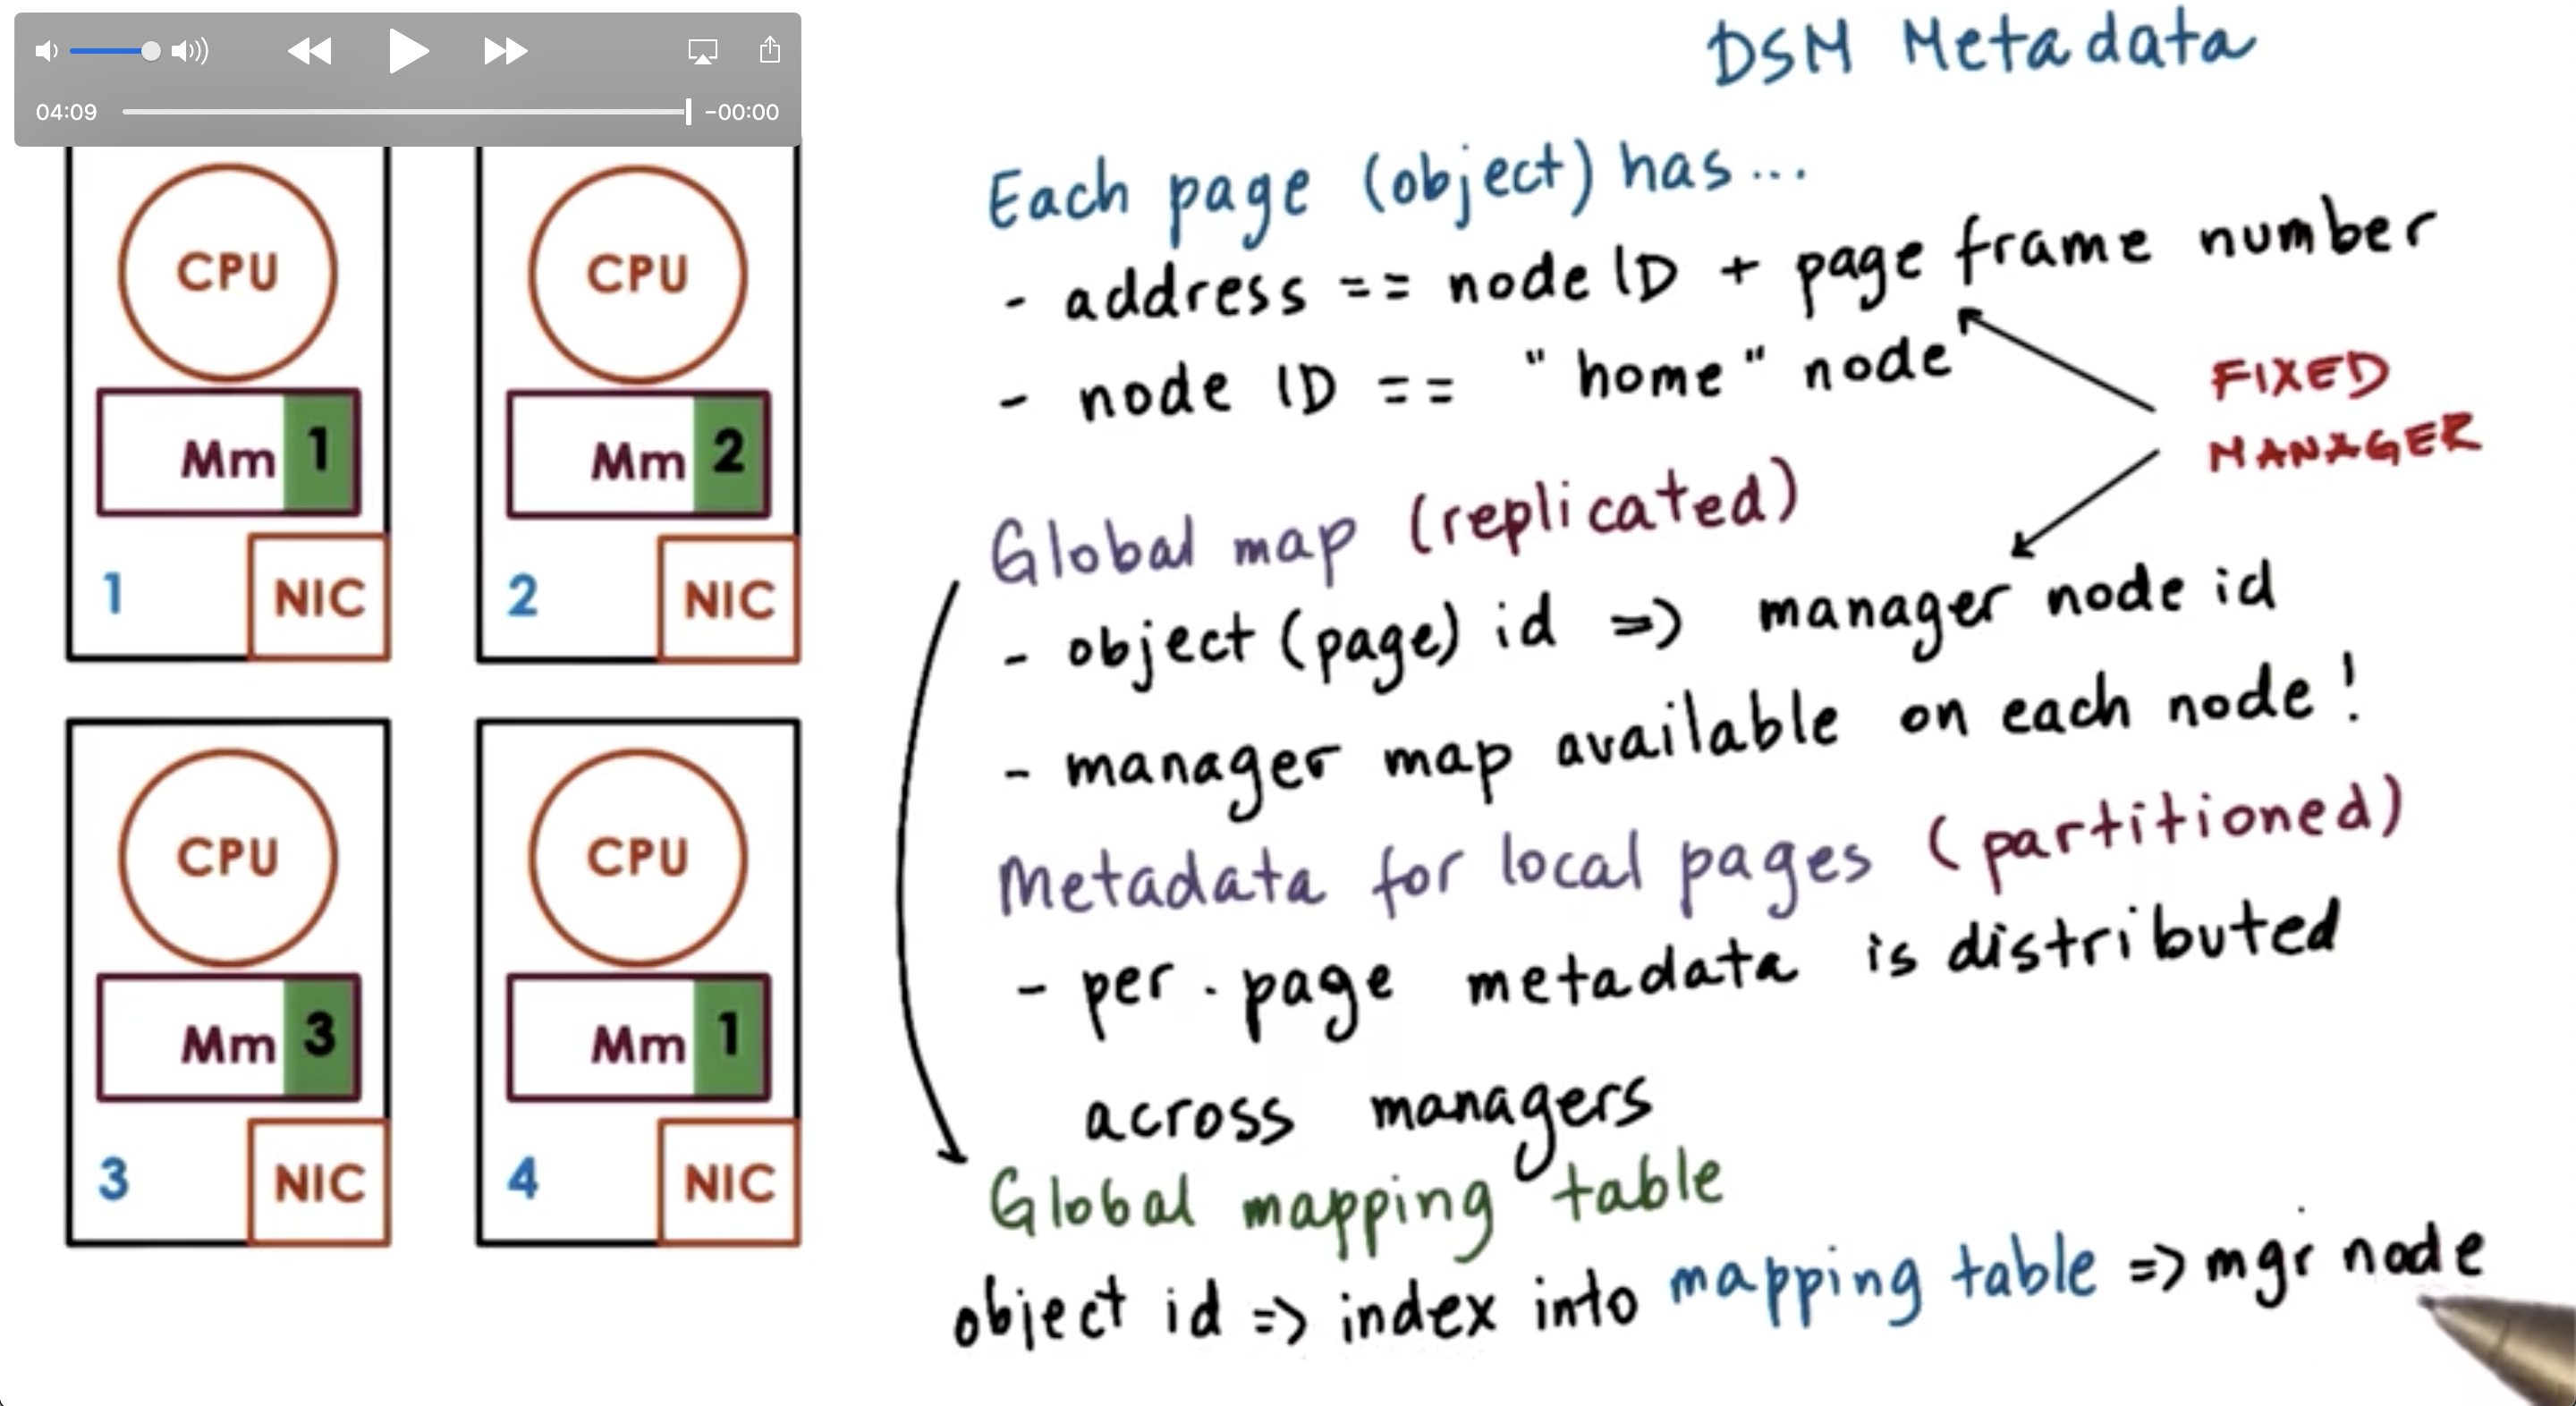 04:09
-00:00
CPU
Mm 1
1 NIC
CPU
Mm 2
2 NIC
CPU
Mm 3
3 NIC
CPU
Mm 1
4 NIC
DSM Metadata
Each page (object) has...
- address == node ID + page frame number
- node ID == "home" node
FIXED
MANAGER
Global map (replicated)
- object (page) id => manager node id
- manager map available on each node!
Metadata for local pages (partitioned)
- per-page metadata is distributed
across managers
Global mapping table
object id => index into mapping table => mgr node